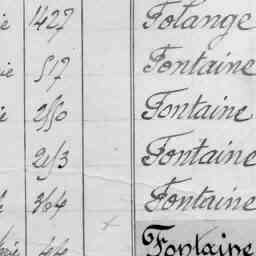 ie 1427 Folange
ie 517 Fontaine
e 250 Fontaine
253 Fontaine
364 Fontaine
44 Fontaine